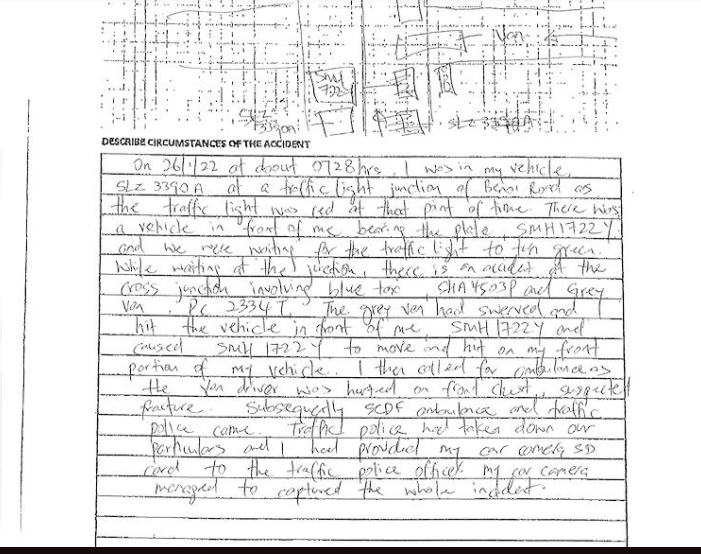 Van
SMH
1722
SLZ
3390A
SLZ 3390A
DESCRIBE CIRCUMSTANCES OF THE ACCIDENT
On 26/1/22 at about 0728hrs, I was in my vehicle,
SLZ 3390A at a traffic light junction of Benoi Road as
the traffic light was red at that point of time. There was
a vehicle in front of me bearing the plate, SMH1722Y
and we were waiting for the traffic light to turn green.
While waiting at the junction, there is an accident at the
cross junction involving blue taxi, SHA4503P and Grey
Van, PC 2334T. The grey van had swerved and
hit the vehicle in front of me, SMH 1722Y and
caused SMH 1722Y to move and hit on my front
portion of my vehicle. I then called for ambulance as
the Van driver was hurted on front chest, suspected
fracture. Subsequently SCDF ambulance and traffic
police came. Traffic police had taken down our
particulars and I had provided my car camera SD
card to the traffic police officer. my car camera
managed to captured the whole incident.